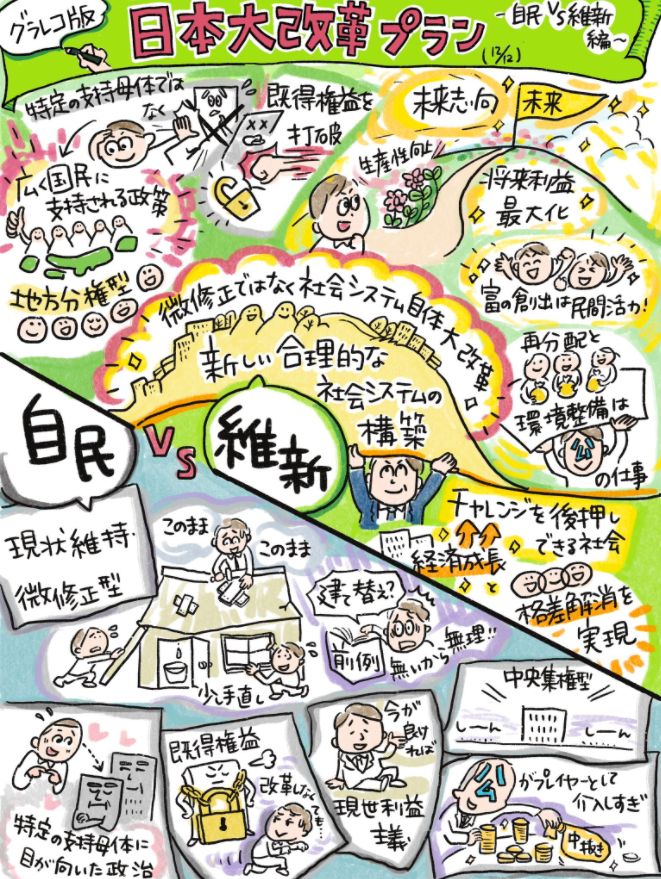 グラレコ版
日本大改革プラン
-自民VS維新
編~
(12/12)
特定の支持母体では
なく
既得権益を
打破
未来志向
未来
生産性向上
広く国民に
支持される政策
将来利益
最大化
地方分権型
富の創出は民間活力!
微修正ではなく社会システム自体大改革
新しい合理的な
社会システムの
構築
再分配と
環境整備は
公
の仕事
自民
VS
維新
チャレンジを後押し
できる社会
経済成長
と
格差解消を
実現
現状維持・
微修正型
このまま
このまま
少し手直し
建て替え?
前例
無いから
無理!!
中央集権型
しーん
しーん
特定の支持母体に
目が向いた政治
既得権益
改革しなくても…
今が
良ければ
現世利益
主義
公
がプレイヤーとして
介入しすぎ
中抜き